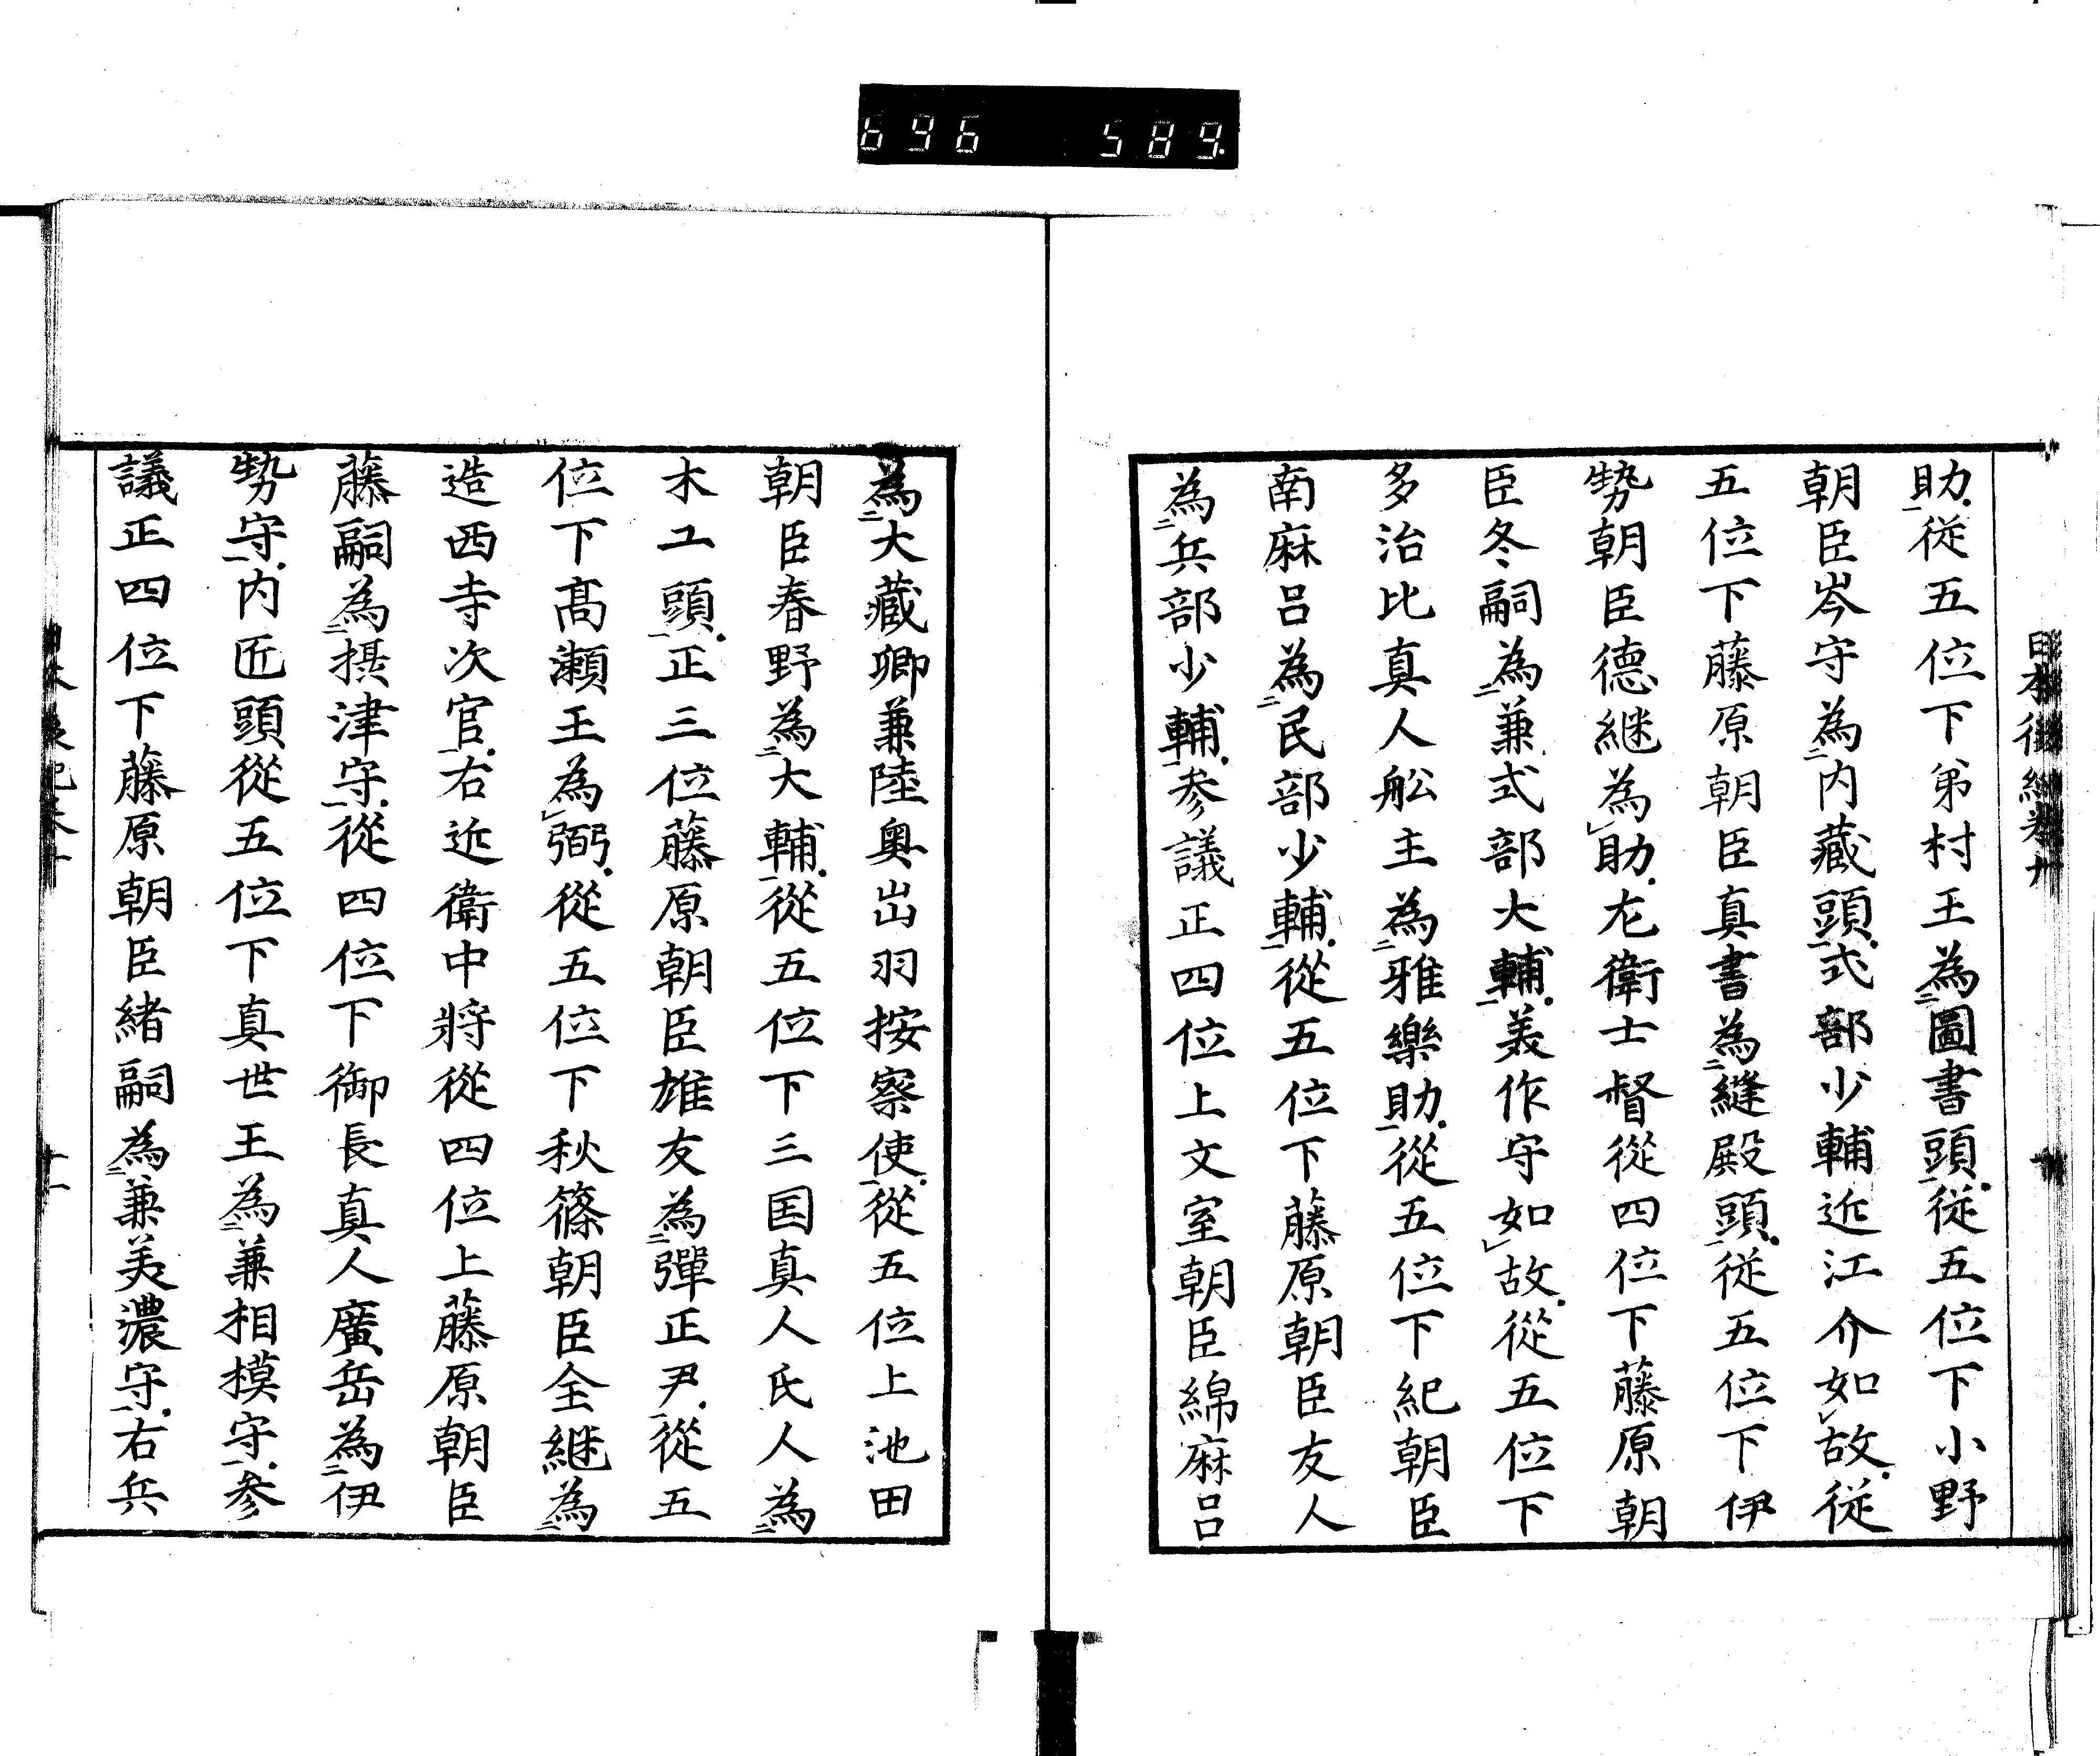 696 589
助従五位下弟村王為圖書頭従五位下小野
朝臣岑守為内藏頭式部少輔近江介如故従
五位下藤原朝臣真書為縫殿頭従五位下伊
勢朝臣德継為助左衛士督從四位下藤原朝
臣冬嗣為兼式部大輔美作守如故從五位下
多治比真人舩主為雅樂助從五位下紀朝臣
南麻呂為民部少輔從五位下藤原朝臣友人
為兵部少輔参議正四位上文室朝臣綿麻呂
為大藏卿兼陸奥出羽按察使從五位上池田
朝臣春野為大輔從五位下三国真人氏人為
木工頭正三位藤原朝臣雄友為彈正尹從五
位下髙瀬王為弼從五位下秋篠朝臣全継為
造西寺次官右近衛中将從四位上藤原朝臣
藤嗣為摂津守從四位下御長真人廣岳為伊
勢守内匠頭從五位下真世王為兼相模守参
議正四位下藤原朝臣緒嗣為兼美濃守右兵